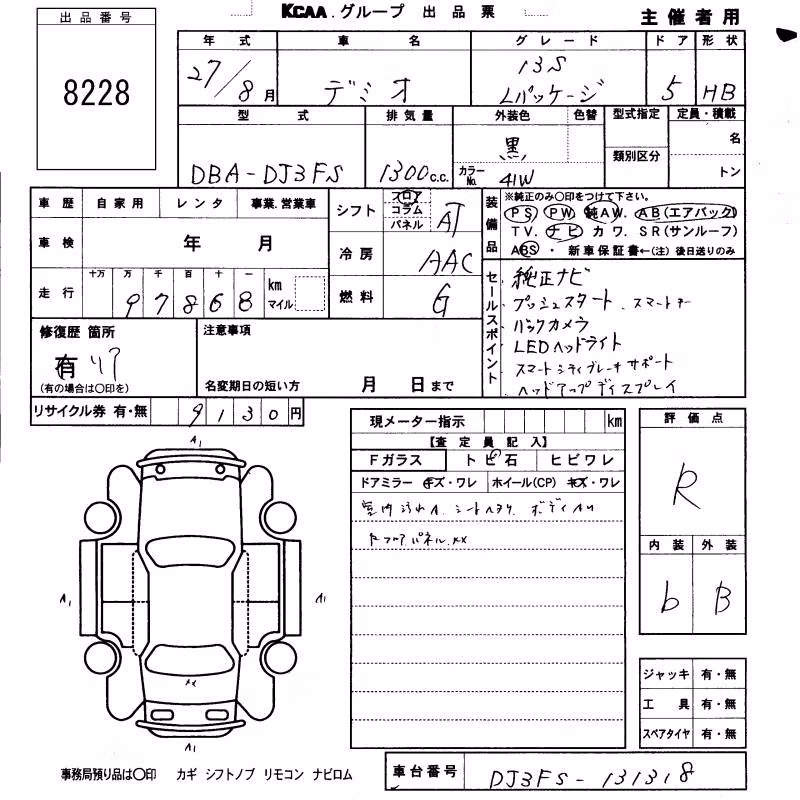 KCAA.グループ 出品票
主催者用
出品番号
8228
年式 車名 グレード ドア 形状
27/8月 デミオ 13S Lパッケージ 5 HB
型式 排気量 外装色 色替 型式指定 定員・積載
DBA-DJ3FS 1300c.c. 黒 カラーNo. 41W 類別区分 名 トン
車歴 自家用 レンタ 事業.営業車
車検 年 月
走行 十万 万 千 百 十 一 km マイル
97868
シフト フロア コラム パネル AT
冷房 AAC
燃料 G
装備品
※純正のみ〇印をつけて下さい。
PS PW 純AW. AB(エアバック)
TV. ナビ カワ. SR(サンルーフ)
ABS・新車保証書←(注)後日送りのみ
セールスポイント
純正ナビ
プッシュスタート.スマートキー
バックカメラ
LEDヘッドライト
スマートシティブレーキサポート
ヘッドアップディスプレイ
修復歴 箇所
有 リア
(有の場合は〇印を)
注意事項
名変期日の短い方 月 日まで
リサイクル券 有・無 9130円
現メーター指示 km
【査定員記入】
Fガラス トビ石 ヒビワレ
ドアミラー キズ・ワレ ホイール(CP) キズ・ワレ
室内汚れA.シートヘタリ.ボディAU
フロアパネル.XX
評価点
R
内装 外装
b B
ジャッキ 有・無
工具 有・無
スペアタイヤ 有・無
A1
A1
A1
XX
A1
事務局預り品は〇印 カギ シフトノブ リモコン ナビロム
車台番号 DJ3FS-131318